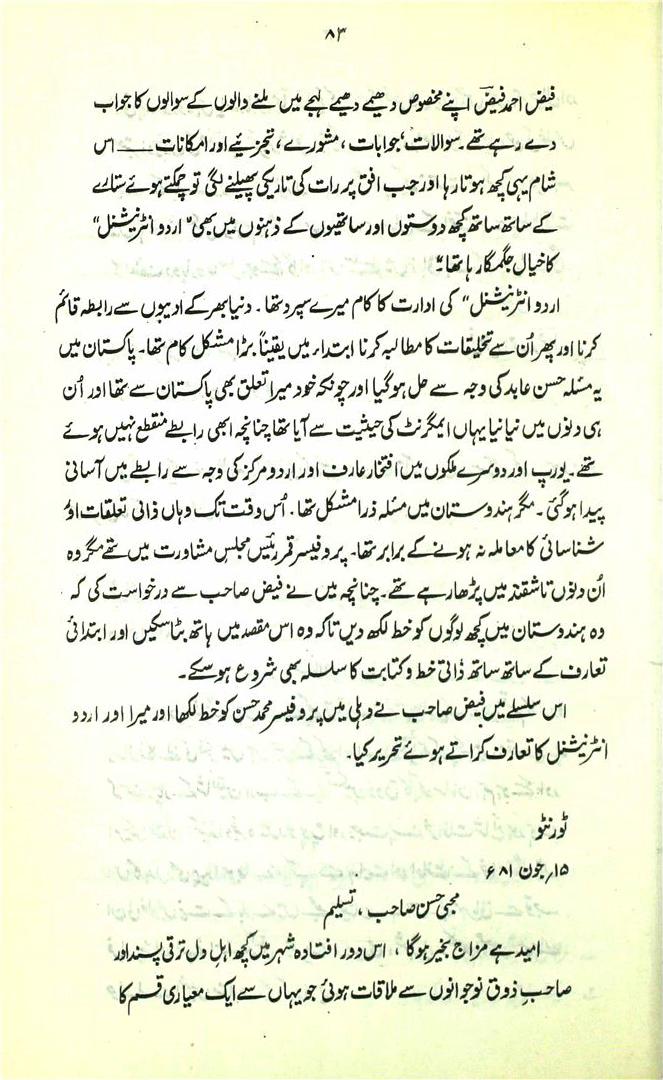 ۸۳
فیض احمد فیضؔ اپنے مخصوص دھیمے دھیمے لہجے میں ملنے والوں کے سوالوں کا جواب
دے رہے تھے۔ سوالات، جوابات، مشورے، تجزیئے اور امکانات ــــــ اس
شام یہی کچھ ہوتا رہا اور جب افق پر رات کی تاریکی پھیلنے لگی تو چمکتے ہوئے ستارے
کے ساتھ ساتھ کچھ دوستوں اور ساتھیوں کے ذہنوں میں بھی "اردو انٹرنیشنل"
کا خیال جگمگا رہا تھا۔"
اردو انٹرنیشنل" کی ادارت کا کام میرے سپرد تھا۔ دنیا بھر کے ادیبوں سے رابطہ قائم
کرنا اور پھر اُن سے تخلیقات کا مطالبہ کرنا ابتداء میں یقیناً بڑا مشکل کام تھا۔ پاکستان میں
یہ مسئلہ حسن عابد کی وجہ سے حل ہوگیا اور چونکہ خود میرا تعلق بھی پاکستان سے تھا اور اُن
ہی دنوں میں نیا نیا یہاں ایمگرنٹ کی حیثیت سے آیا تھا چنانچہ ابھی رابطے منقطع نہیں ہوئے
تھے۔ یورپ اور دوسرے ملکوں میں افتخار عارف اور اردو مرکز کی وجہ سے رابطے میں آسانی
پیدا ہوگئی۔ مگر ہندوستان میں مسئلہ ذرا مشکل تھا۔ اُس وقت تک وہاں ذاتی تعلقات اور
شناسائی کا معاملہ نہ ہونے کے برابر تھا۔ پروفیسر قمر رئیس مجلس مشاورت میں تھے مگر وہ
اُن دنوں تاشقند میں پڑھا رہے تھے۔ چنانچہ میں نے فیض صاحب سے درخواست کی کہ
وہ ہندوستان میں کچھ لوگوں کو خط لکھ دیں تاکہ وہ اس مقصد میں ہاتھ بٹا سکیں اور ابتدائی
تعارف کے ساتھ ساتھ ذاتی خط و کتابت کا سلسلہ بھی شروع ہوسکے۔
اس سلسلے میں فیض صاحب نے دہلی میں پروفیسر محمد حسن کو خط لکھا اور میرا اور اردو
انٹرنیشنل کا تعارف کراتے ہوئے تحریر کیا۔
ٹورنٹو
۱۵؍ جون ۸۱ ۶
محبی حسن صاحب، تسلیم
امید ہے مزاج بخیر ہوگا، اس دور افتادہ شہر میں کچھ اہلِ دل ترقی پسند اور
صاحبِ ذوق نوجوانوں سے ملاقات ہوئی جو یہاں سے ایک معیاری قسم کا